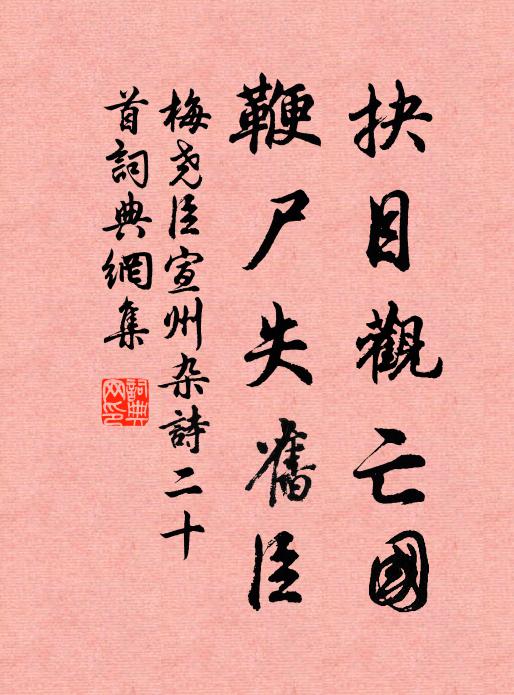 抉目觀亡國
鞭尸失舊臣
梅尧臣宣州杂詩二十
首詞典網集
詞典
网印